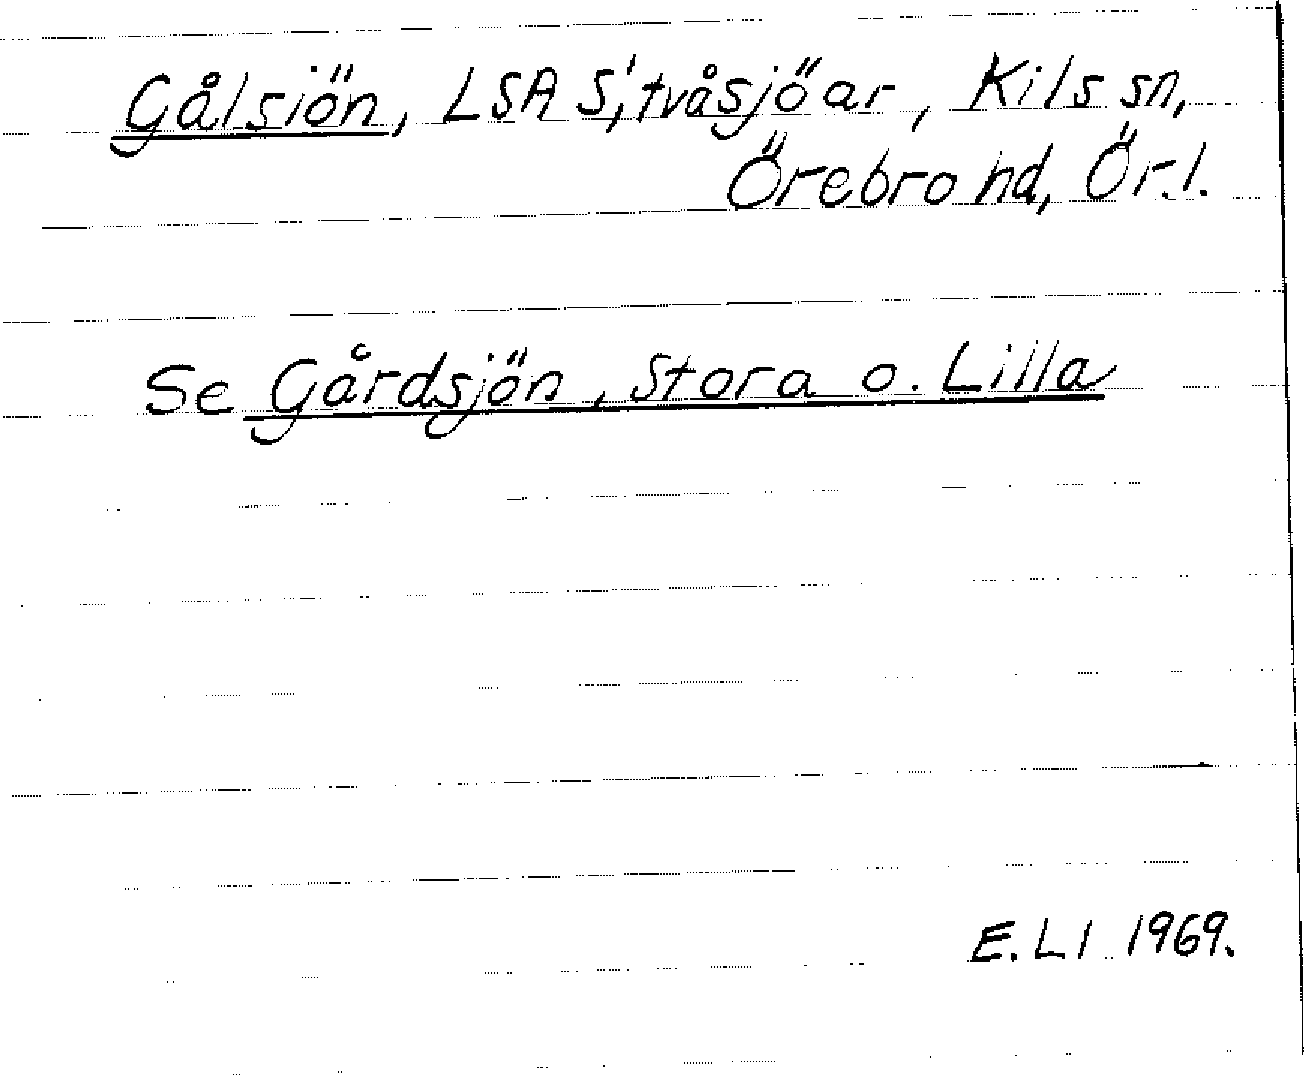 Gålsjön, LSA S; två sjöar, Kils sn,
Örebro hd, Ör.l.
Se Gårdsjön, Stora o. Lilla
E. LI 1969.